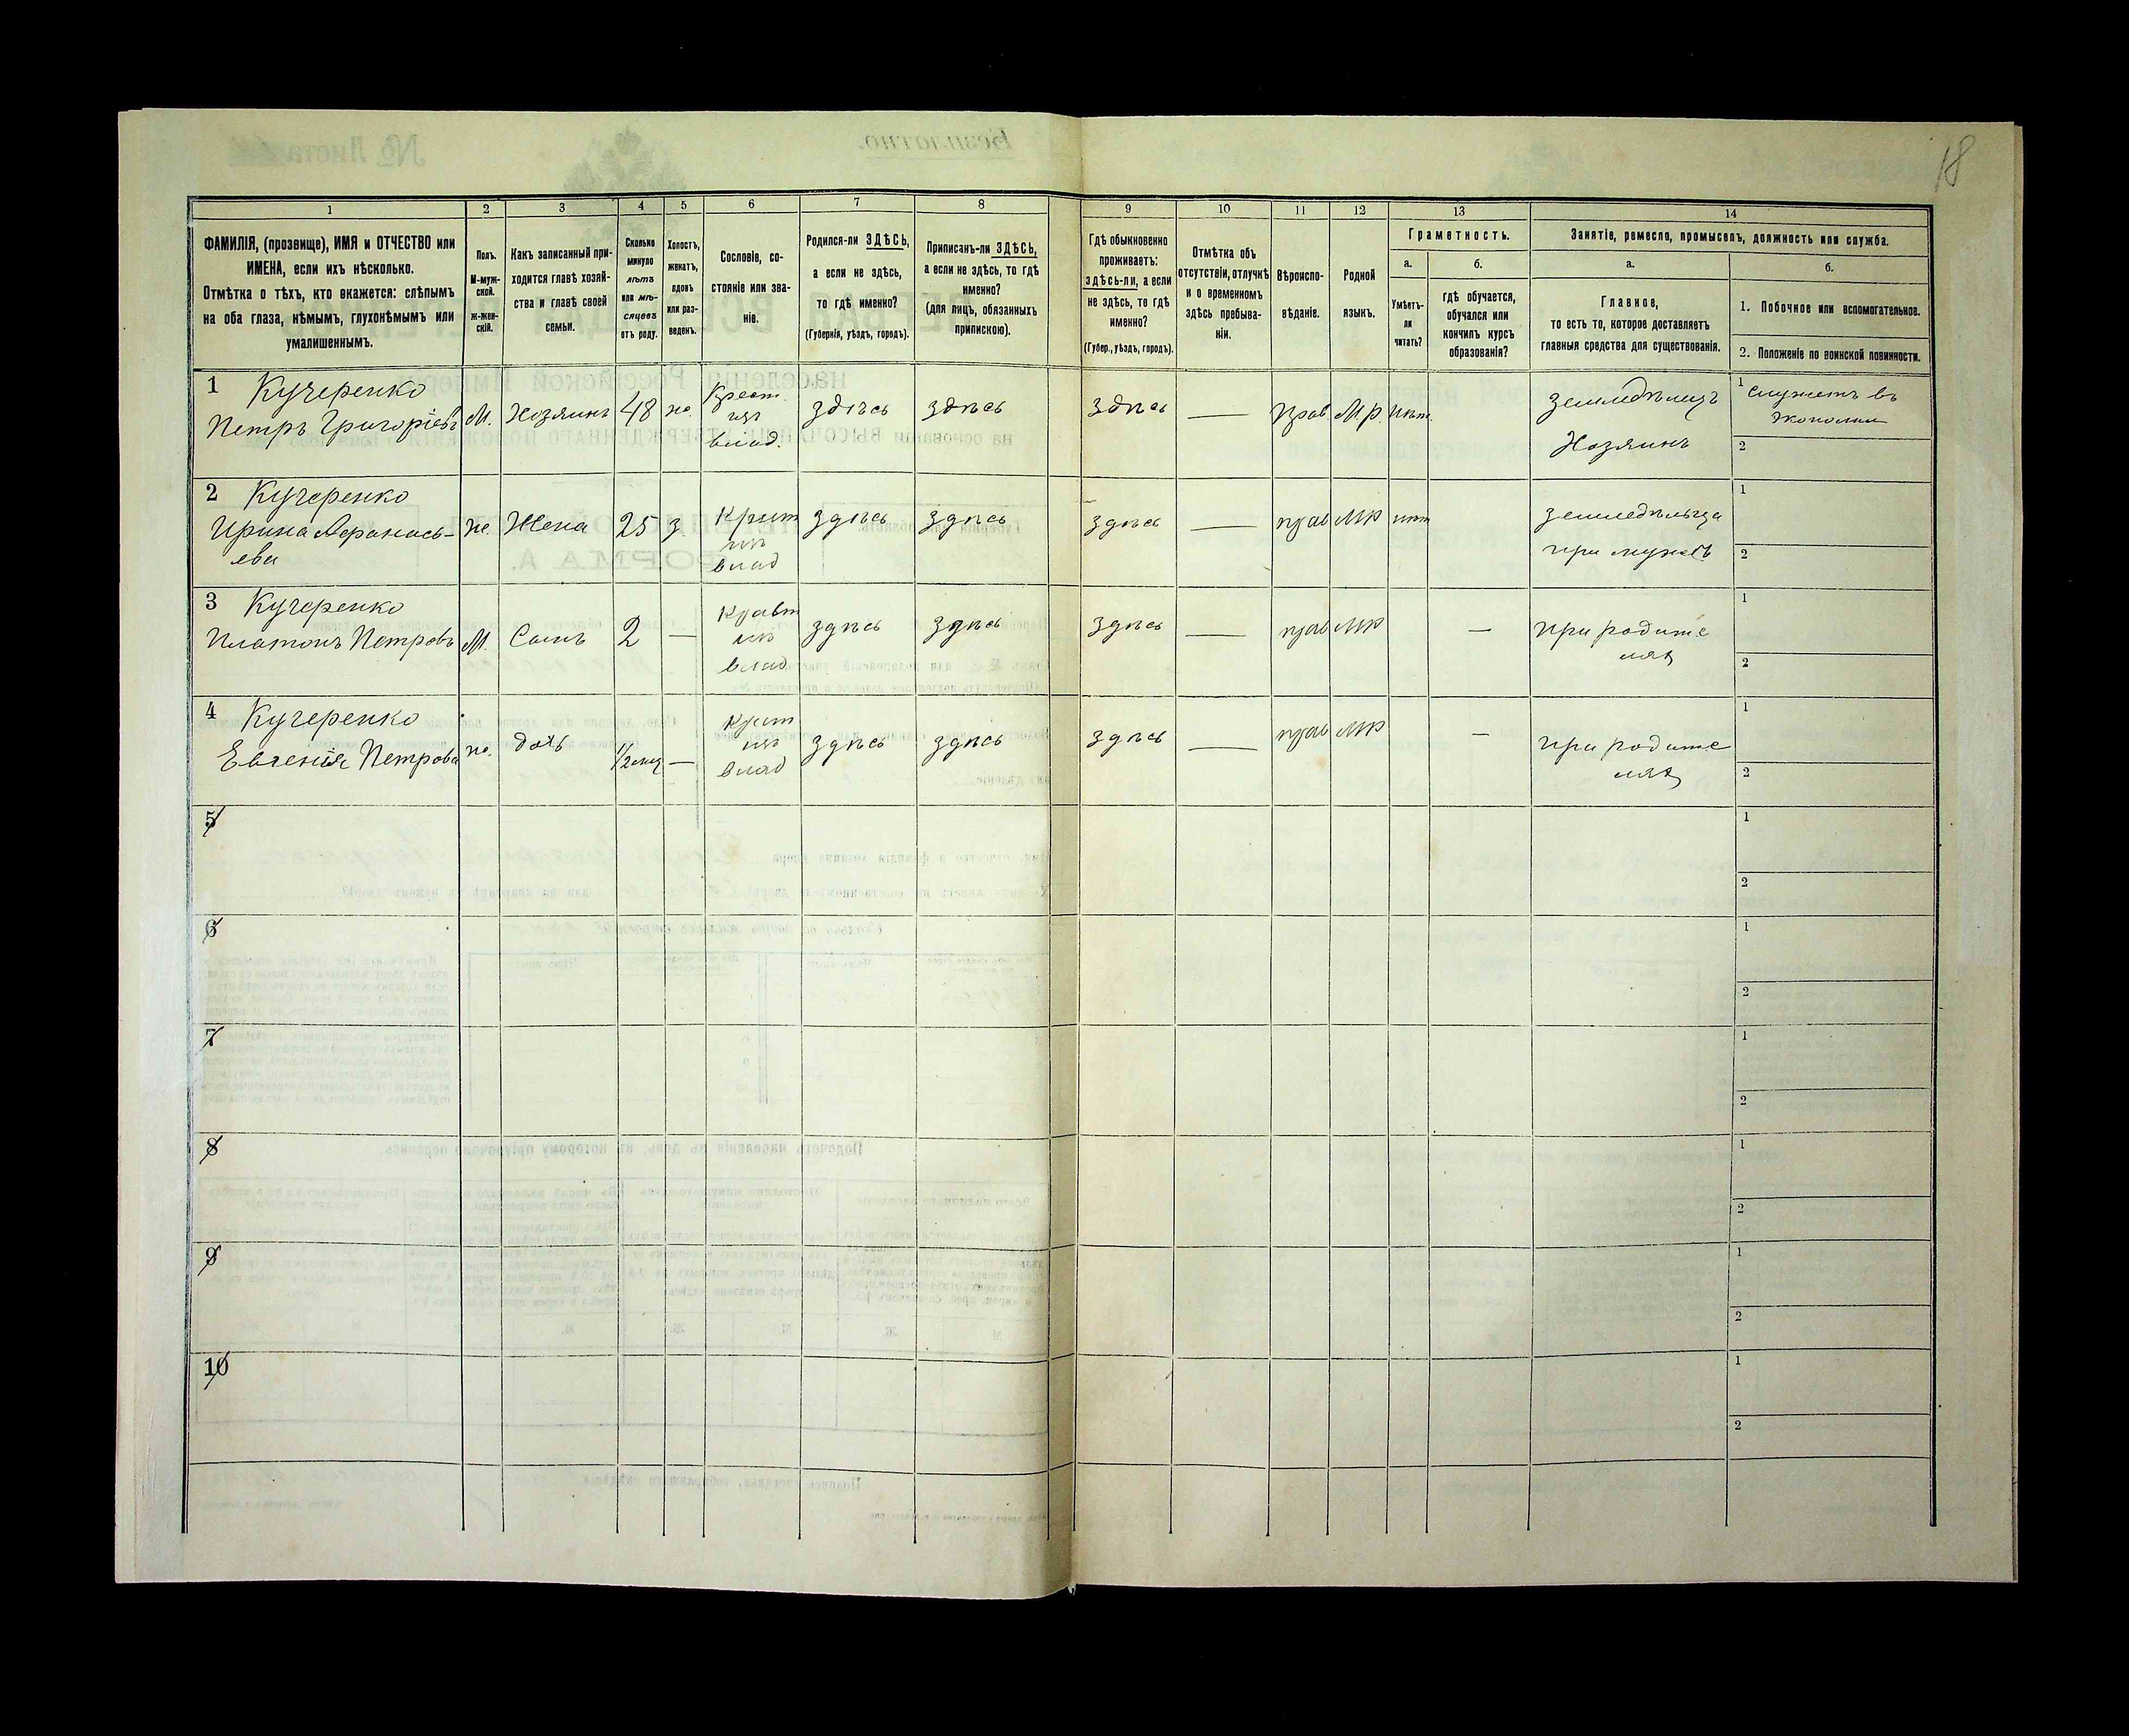 18
1
2
3
4
5
6
7
8
9
10
11
12
13
14
ФАМИЛІЯ, (прозвище), ИМЯ и ОТЧЕСТВО или
ИМЕНА, если ихъ нѣсколько.
Отмѣтка о тѣхъ, кто окажется: слѣпымъ
на оба глаза, нѣмымъ, глухонѣмымъ или
умалишеннымъ.
Полъ.
М-муж-
ской.
ж-жен-
скій.
Какъ записанный при-
ходится главѣ хозяй-
ства и главѣ своей
семьи.
Сколько
минуло
лѣтъ
или мѣ-
сяцевъ
отъ роду.
Холостъ,
женатъ,
вдовъ
или раз-
веденъ.
Сословіе, со-
стояніе или зва-
ніе.
Родился-ли ЗДѢСЬ,
а если не здѣсь,
то гдѣ именно?
(Губернія, уѣздъ, городъ).
Приписанъ-ли ЗДѢСЬ,
а если не здѣсь, то гдѣ
именно?
(для лицъ, обязанныхъ
припискою).
Гдѣ обыкновенно
проживаетъ:
здѣсь-ли, а если
не здѣсь, то гдѣ
именно?
(Губер., уѣздъ, городъ).
Отмѣтка объ
отсутствіи, отлучкѣ
и о временномъ
здѣсь пребыва-
ніи.
Вѣроиспо-
вѣданіе.
Родной
языкъ.
Грамотность.
а.
Умѣетъ-
ли
читать?
б.
гдѣ обучается,
обучался или
кончилъ курсъ
образованія?
Занятіе, ремесло, промыселъ, должность или служба.
а.
Главное,
то есть то, которое доставляетъ
главныя средства для существованія.
б.
1. Побочное или вспомогательное.
2. Положеніе по воинской повинности.
1 Кучеренко
Петръ Григоріевъ
М.
Хозяинъ
48
же.
Крест.
изъ
влад.
здѣсь
здѣсь
здѣсь
—
прав
Мр.
нѣт.
земледѣлецъ
Хозяинъ
1 Служитъ въ
Экономіи
2
2 Кучеренко
Ирина Афанась-
ева
же.
Жена
25
з
Крит
изъ
влад
здѣсь
здѣсь
здѣсь
—
прав
МР
нѣт
земледѣльца
при мужѣ
1
2
3 Кучеренко
Платонъ Петровъ
М.
Сынъ
2
—
изъ
влад
здѣсь
здѣсь
здѣсь
—
прав
МР
—
при родите
ляхъ
1
2
4 Кучеренко
Евгенія Петрова
же.
дочь
1/2 мц
—
Крит
изъ
влад
здѣсь
здѣсь
здѣсь
—
прав
МР
—
при родите
ляхъ
1
2
5
1
2
6
1
2
7
1
2
8
1
2
9
1
2
10
1
2